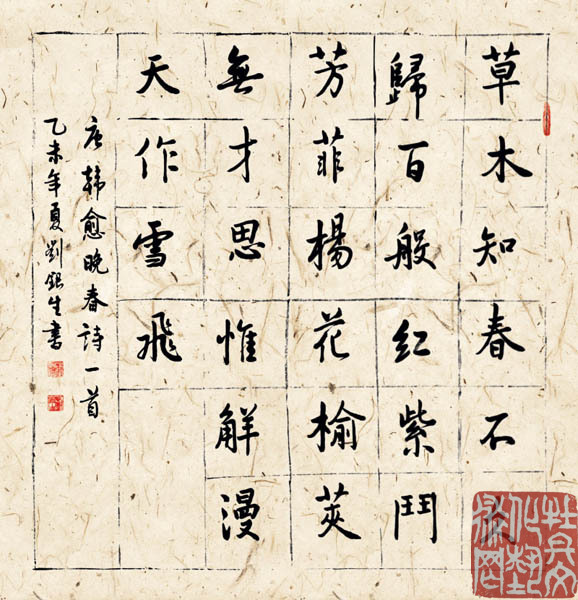 草木知春不久
歸百般紅紫鬥
芳菲楊花榆莢
無才思惟解漫
天作雪飛
唐韓愈晚春詩一首
乙未年夏劉銀生書